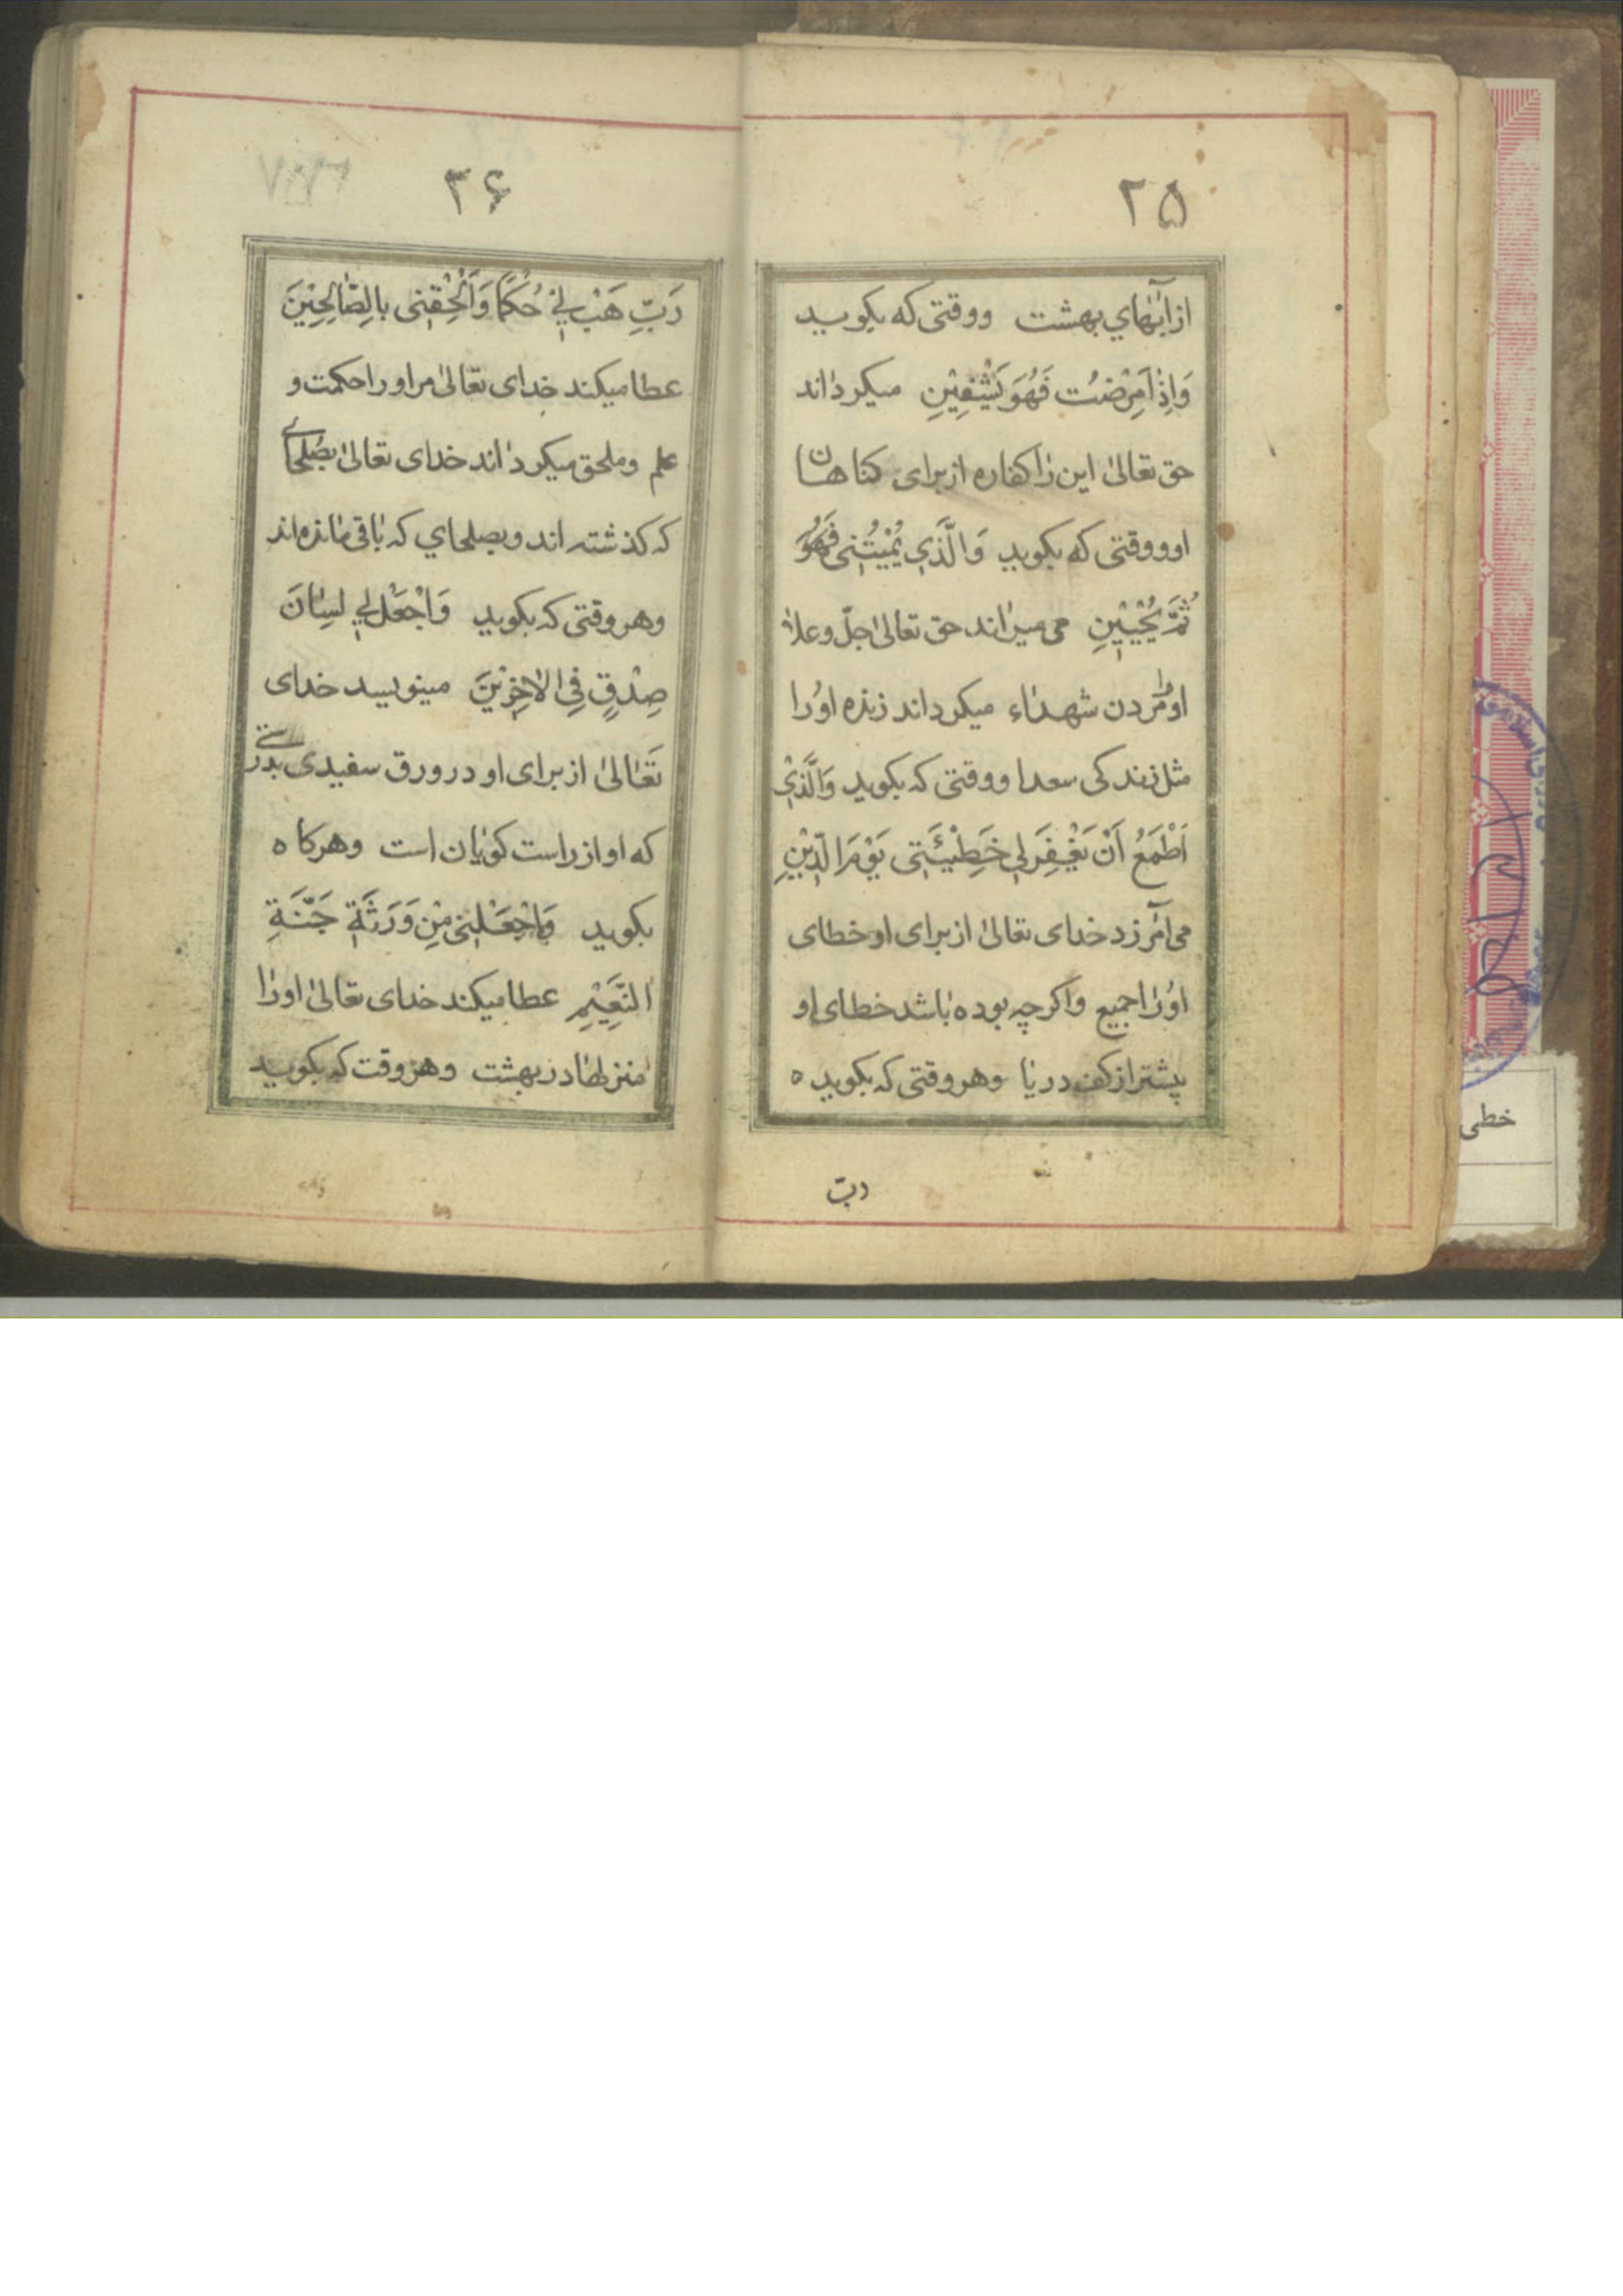 ۲۵
از آبهاي بهشت ووقتى كه بكويد
وَاِذٰا مَرِضْتُ فَهُوَ يَشْفِيْنِ ميكرداند
حق تعالىٰ اين را كفاره از براى كناهان
او ووقتى كه بكويد وَالَّذي يُمْيتُنى فَهُوَ
ثُمَّ يُحْيِيْنِ مى ميراند حق تعالىٰ جلّ وعلا
او را مُردن شهداء ميكرداند زنده اوُرا
مثل زندكى سعدا ووقتى كه بكويد وَالَّذيْ
اَطْمَعُ اَنْ يَغْفِرَلي خَطِيْئَتى يَوْمَ الدِّيْنِ
مى آمرزد خداى تعالىٰ از براى او خطاى
اوُرا جميع واكرچه بوده باشد خطاى او
پيشتر از كف دريا وهر وقتى كه بكويد ه
ربّ
۲۶
رَبِّ هَبْ ليْ حُكمًا وَاَلْحِقْنى بالِصّٰالِحِيْنَ
عطا ميكند خداى تعالىٰ مر او را حكمت و
علم وملحق ميكرداند خداى تعالىٰ بصُلحاى
كه كذشته اند وبصلحاي كه باقى مانده اند
وهر وقتى كه بكويد وَاجْعَلْ لي لِسٰانَ
صِدْقٍ فِي الاٰخِرِيْنَ مينويسد خداى
تَعٰالىٰ از براى او در ورق سفيدى بدرستى
كه او از راست كويان است وهركاه
بكويد وَاجْعَلْنى مِنْ وَرَثَةِ جَنَّةِ
النَّعِيْمِ عطا ميكند خداى تعالىٰ اورا
منزلها در بهشت وهر وقت كه بكويد
خطى